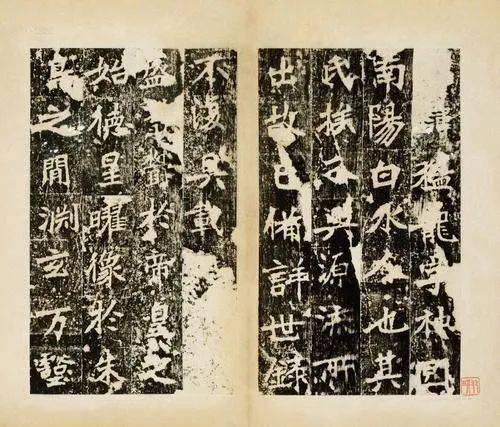 諱猛龍字神囧
南陽白水人也其
氏族分興源流所
出故已備詳世錄
不復具載
於帝皇之
始德星曜像於朱
鳥之間淵玄万壑